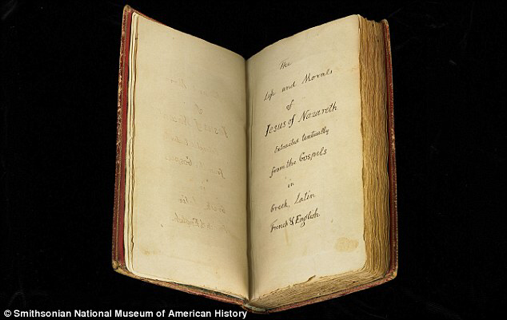 The
Life and Morals
of
Jesus of Nazareth
Extracted textually
from the Gospels
in
Greek Latin
French & English
© Smithsonian National Museum of American History